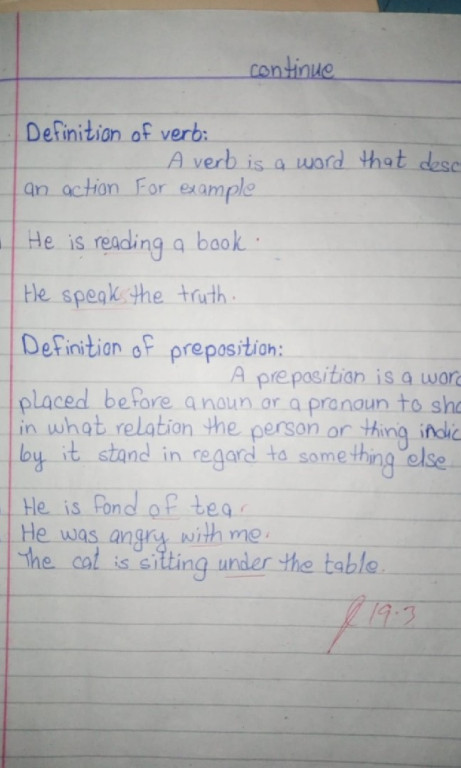 continue
Definition of verb:
A verb is a word that desc
an action For example
He is reading a book.
He speak the truth.
Definition of preposition:
A preposition is a word
placed before a noun or a pronoun to sho
in what relation the person or thing indic
by it stand in regard to something else
He is fond of tea.
He was angry with me.
The cat is sitting under the table.
19.3